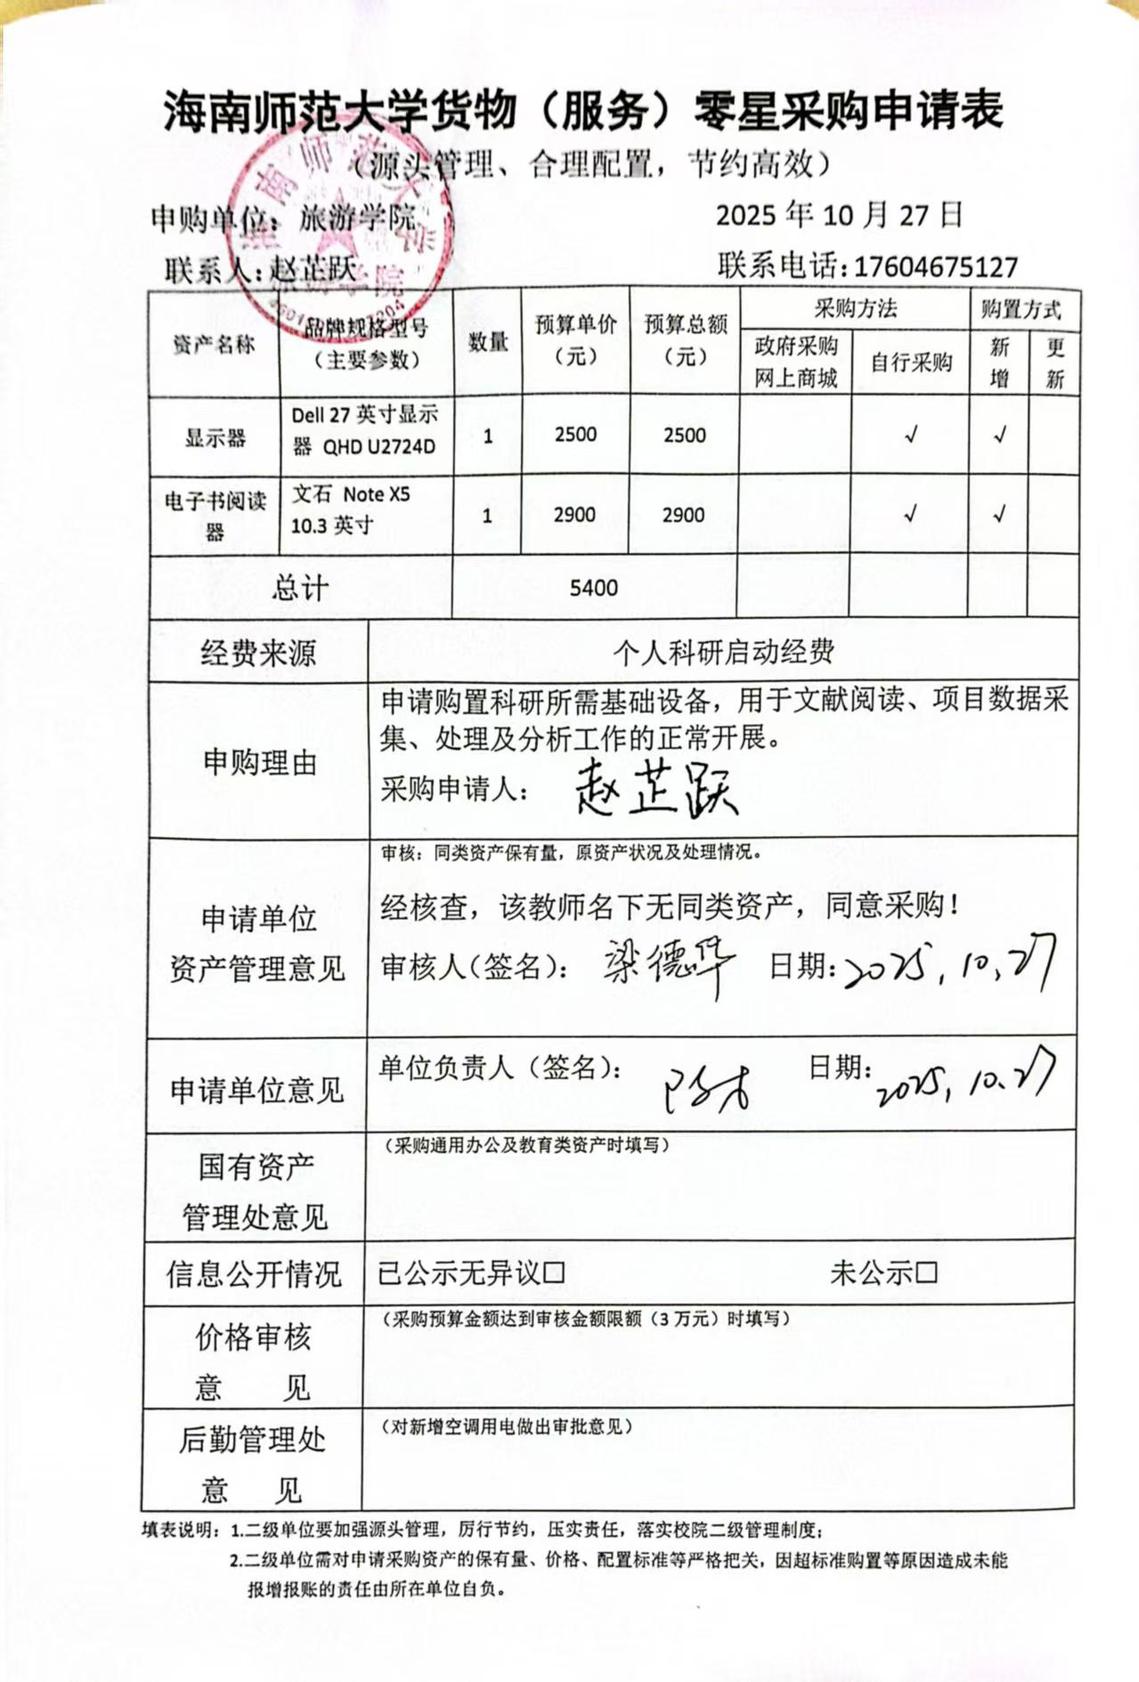 海南师范大学货物（服务）零星采购申请表
（源头管理、合理配置，节约高效）
申购单位：旅游学院
2025 年 10 月 27 日
联系人：赵芷跃
联系电话：17604675127
资产名称
品牌规格型号
（主要参数）
数量
预算单价
（元）
预算总额
（元）
采购方法
购置方式
政府采购
网上商城
自行采购
新
增
更
新
显示器
Dell 27 英寸显示
器 QHD U2724D
1
2500
2500
√
√
电子书阅读
器
文石 Note X5
10.3 英寸
1
2900
2900
√
√
总计
5400
经费来源
个人科研启动经费
申购理由
申请购置科研所需基础设备，用于文献阅读、项目数据采
集、处理及分析工作的正常开展。
采购申请人： 赵芷跃
申请单位
资产管理意见
审核：同类资产保有量，原资产状况及处理情况。
经核查，该教师名下无同类资产，同意采购！
审核人（签名）： 梁德华 日期：2025.10.27
申请单位意见
单位负责人（签名）： 日期：2025.10.27
国有资产
管理处意见
（采购通用办公及教育类资产时填写）
信息公开情况
已公示无异议□ 未公示□
价格审核
意 见
（采购预算金额达到审核金额限额（3 万元）时填写）
后勤管理处
意 见
（对新增空调用电做出审批意见）
填表说明：1.二级单位要加强源头管理，厉行节约，压实责任，落实校院二级管理制度；
2.二级单位需对申请采购资产的保有量、价格、配置标准等严格把关，因超标准购置等原因造成未能
报增报账的责任由所在单位自负。